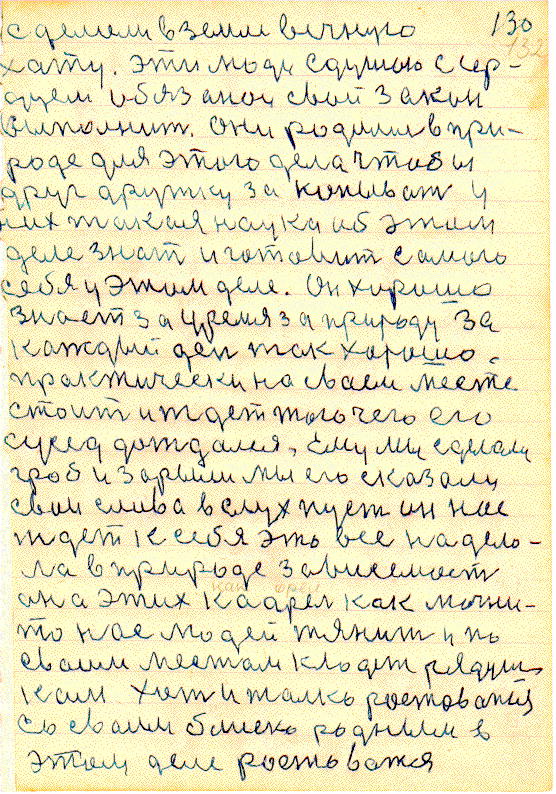 130
132
сделали в земли вечную
хату. Эти люди с душою с сер-
дцем обязаной свой закон
выполнит. Они родили в при-
роде для этого дела чтобы
друг дружку за копыват у
них такая наука об этом
деле знат и готовит самого
себя у этом деле. Он хорошо
знает за время за природу за
каждый ден так хорошо.
практически на своем месте
стоит и ждет того чего его
сусед дождался, Ему мы сделали
гроб и зарыли мы его сказали
свои слова в слух пуст он нас
ждет к себя это все надело-
ла в природе зависемост
она этих кадрел как магни-
как орел
то нас людей тянит и по
своим местам кладет рядуш-
ком Хот и жалко ростоватся
со своим близко родными в
этом деле ростоватся